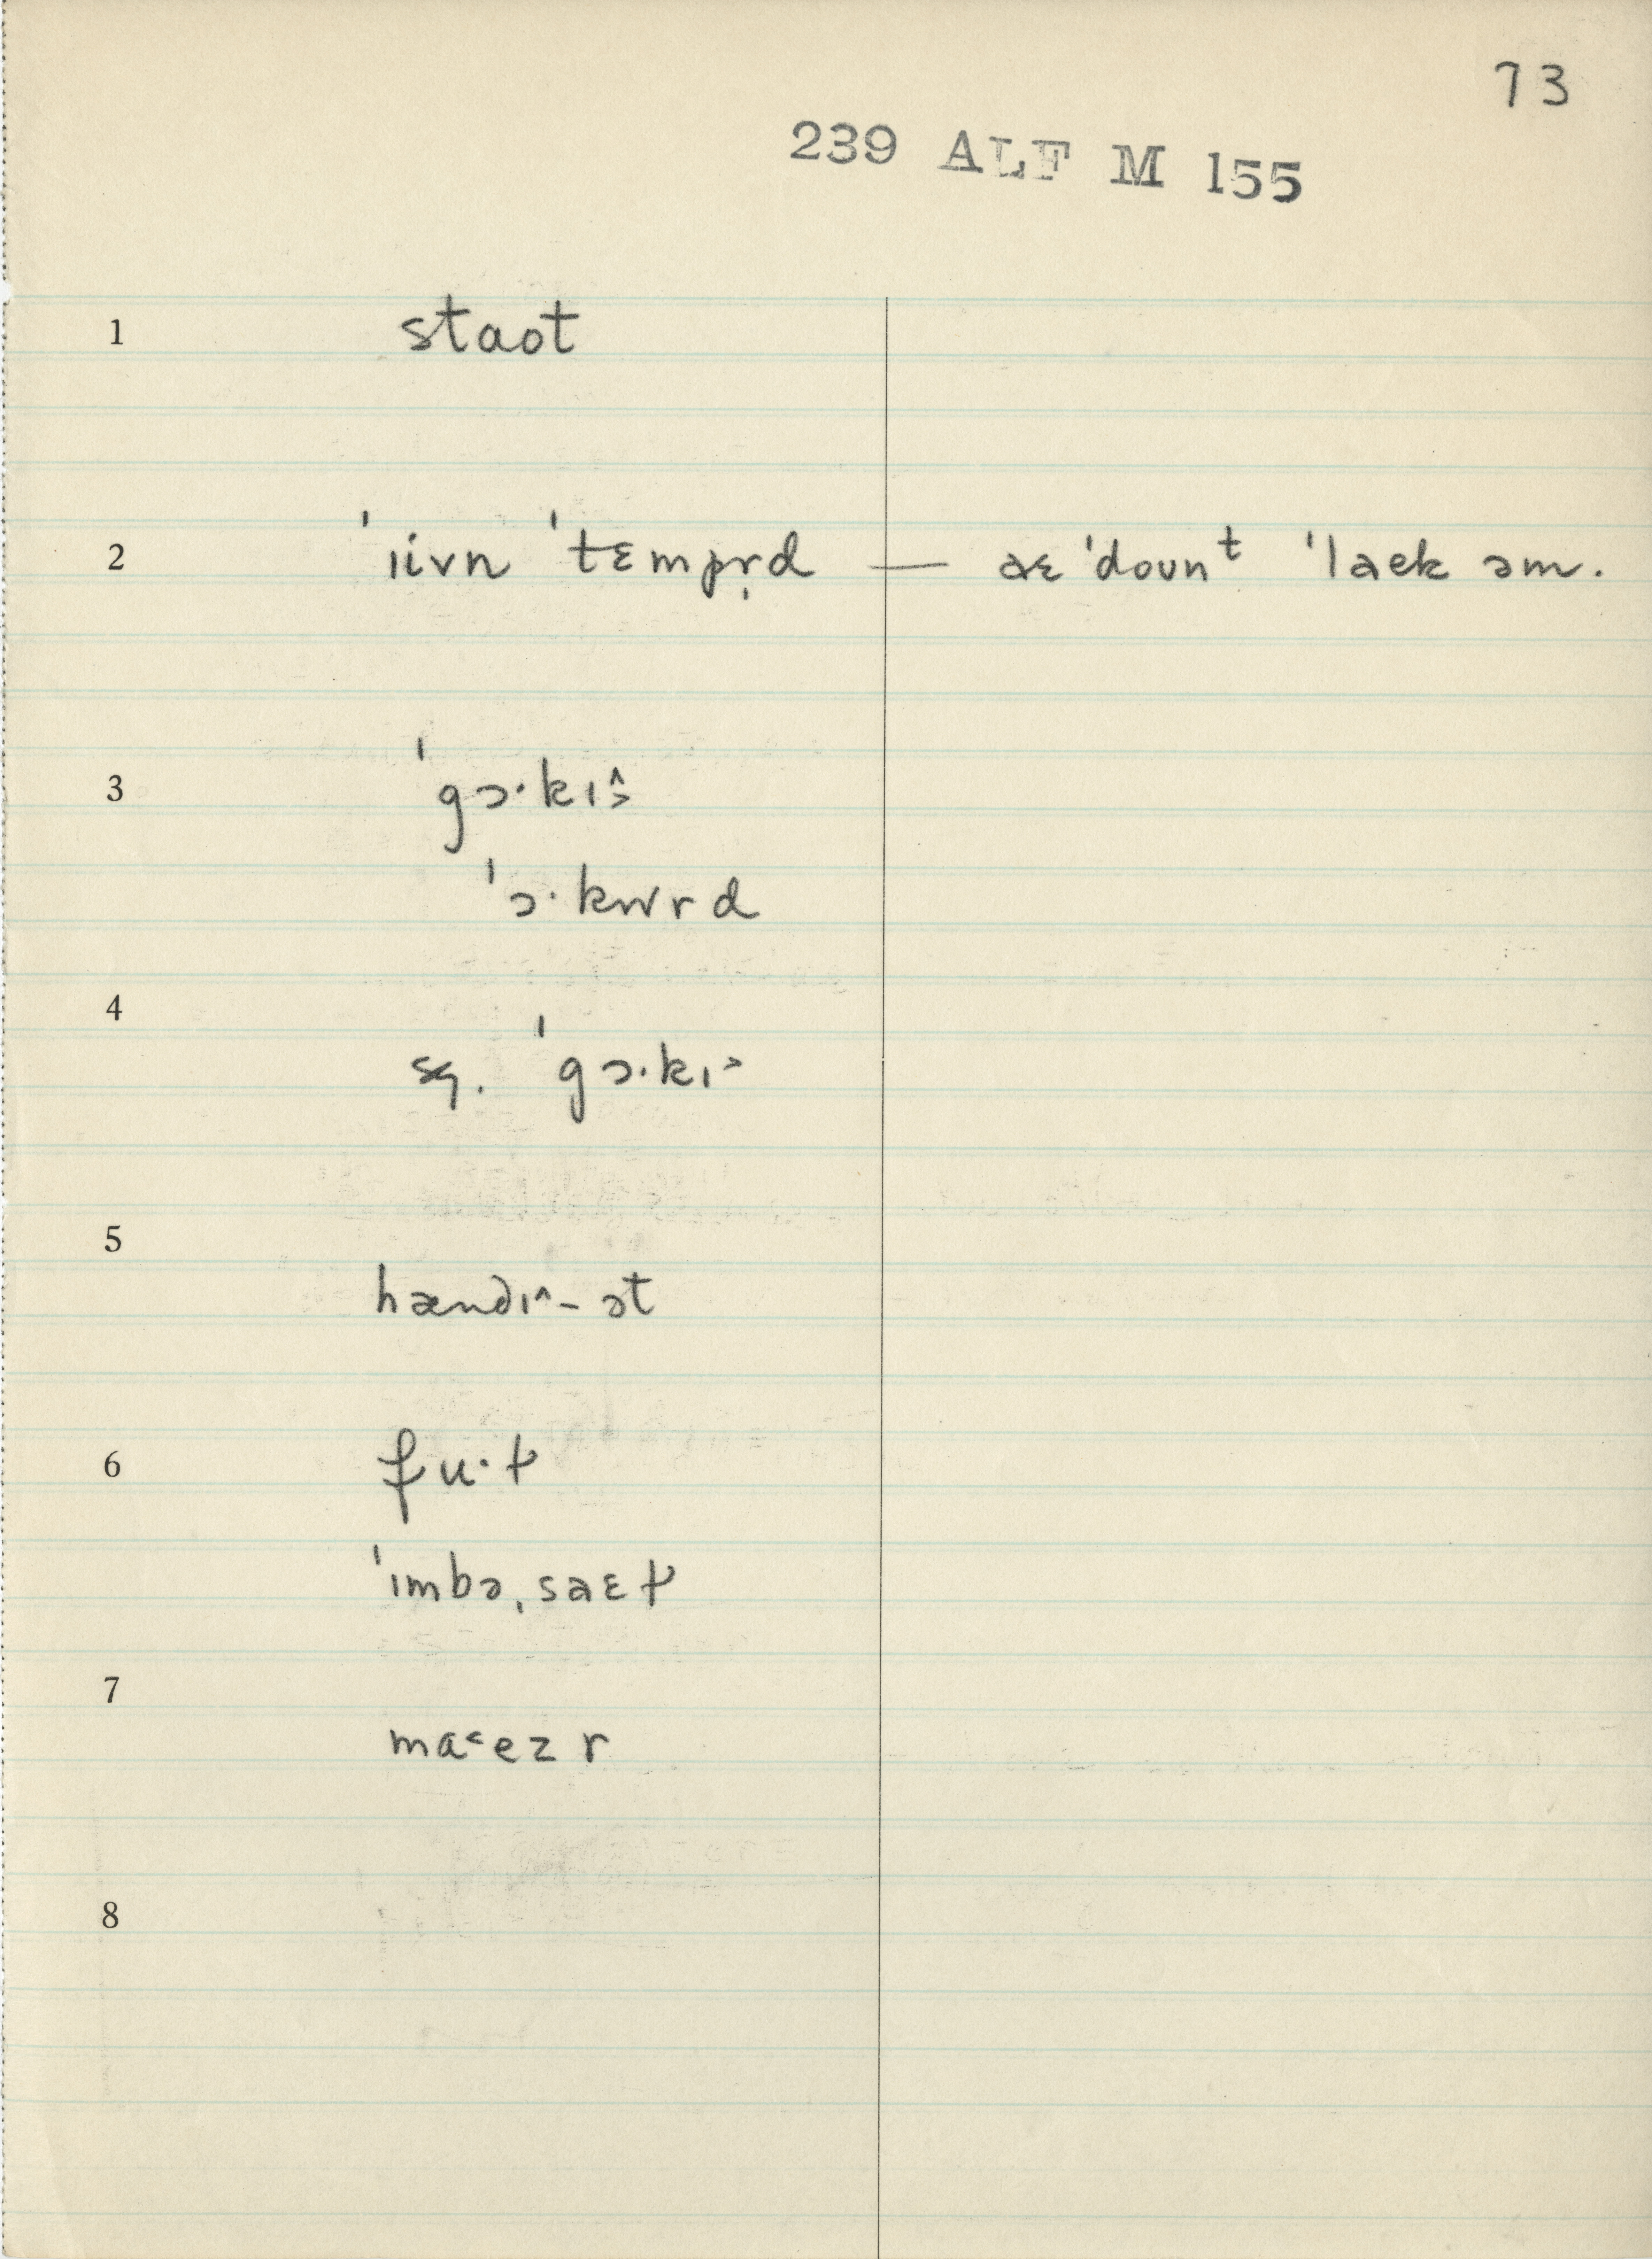 73
239 ALF M 155
1 staot
2 ˈiivn ˈtɛmpr̩d — aɛ ˈdounᵗ ˈlaek əm.
3 ˈgɔ·kɪ˄˃
ˈɔ·kwrd
4
sq. ˈgɔ·kɪ˃
5
hændɪ˄ - ət
6 fu·ɫ
ˈɪmbəˌsaɛɫ
7
ma˂ezr
8